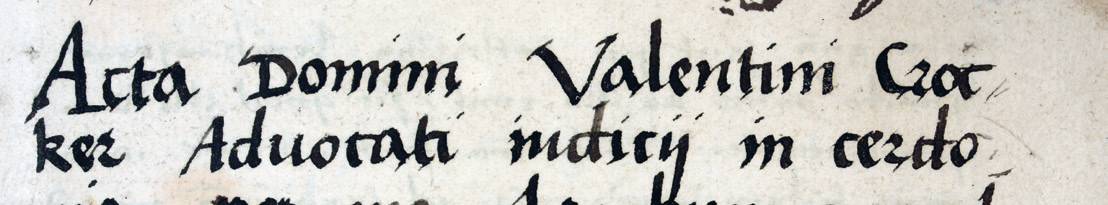 Acta Domini Valentini Croc,,
ker Aduocati iudicij in cerdo